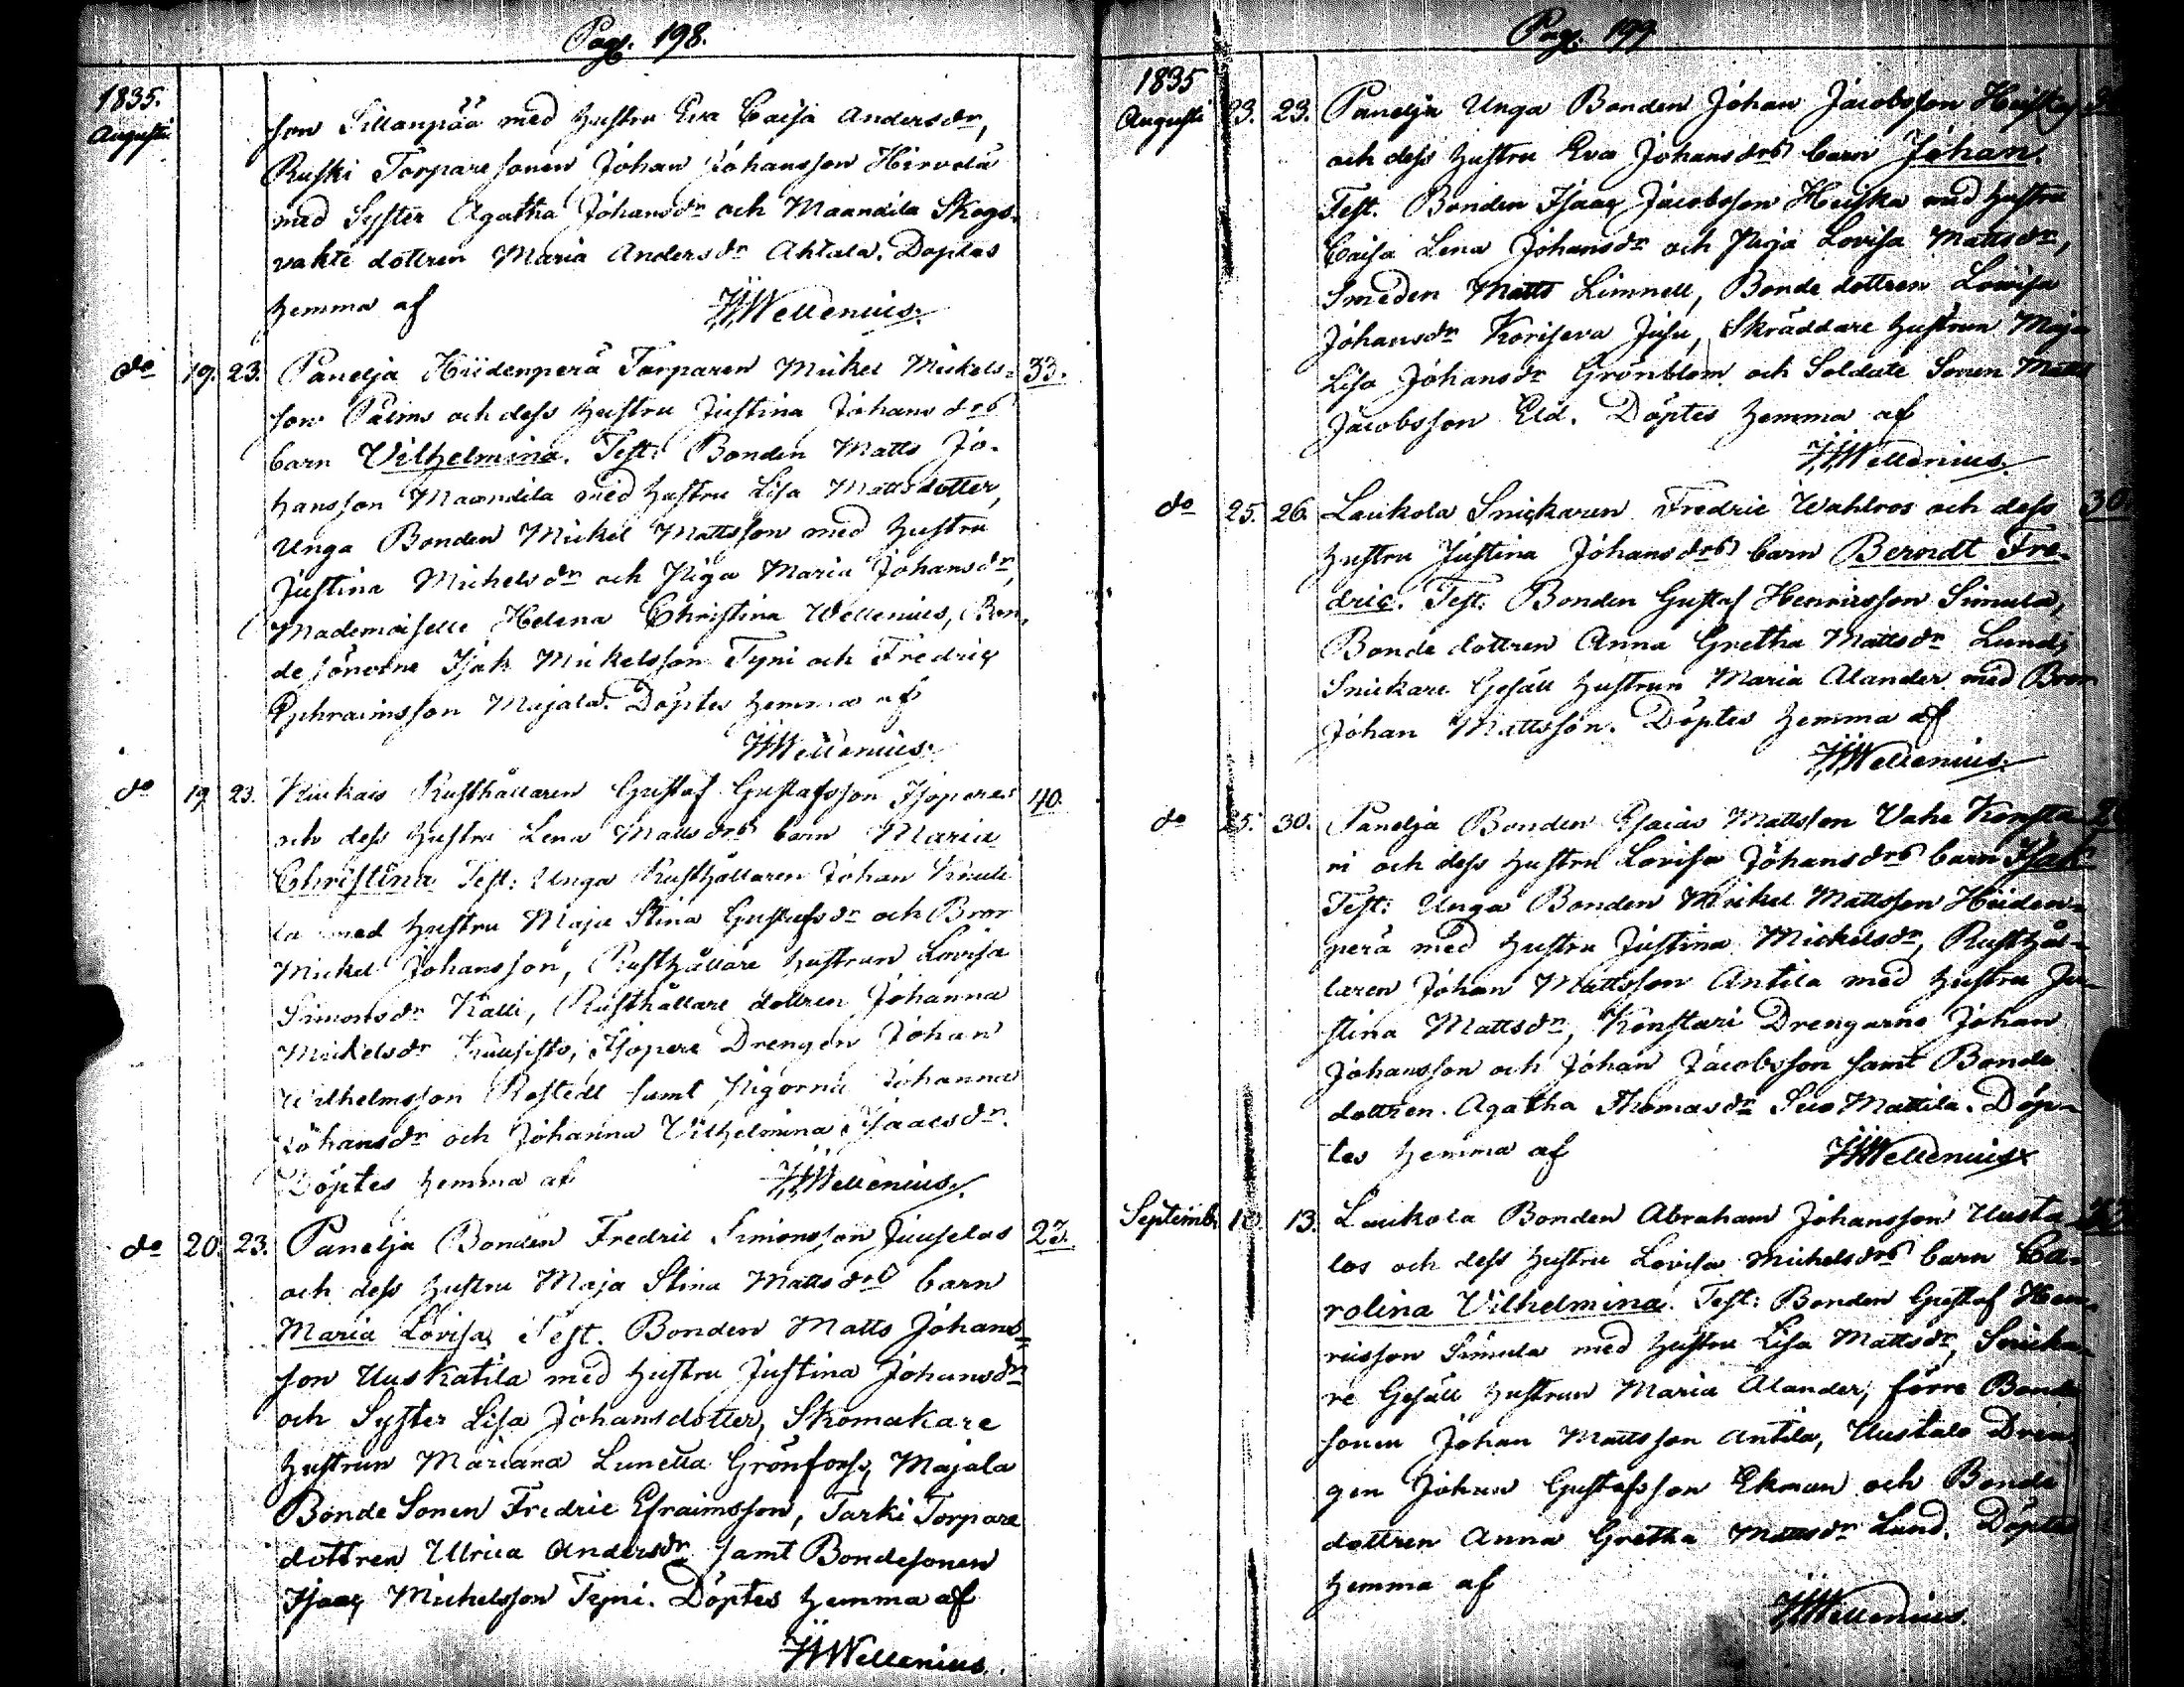 Pag. 198.
1835.
Augusti
son Sillanpää med hustru Eva Caisa Andersdr,
Ruski Torpare sonen Johan Johansson Hirvola
med Syster Agatha Johansdr och Maandila Skogs-
vakte dottren Maria Andersdr Ahtala. Döptes
hemma af
Wellenius.
do 19. 23. Panelja Hiidenperä Torparen Mickel Mickels- 33.
son Palms och dess hustru Justina Johansdrs
barn Vilhelmina. Test: Bonden Matts Jo-
hansson Maandila med hustru Lisa Mattsdotter,
Unga Bonden Mickel Mattsson med hustru
Justina Michelsdr och Piga Maria Johansdr,
Mademoiselle Helena Christina Wellenius, Bon-
de sönerne Isak Mickelsson Tyni och Fredric
Ephraimsson Majala. Döptes hemma af
Wellenius.
do 19 23. Kiukais Rusthållaren Gustaf Gustafsson Isopere 40.
och dess hustru Lena Mattsdrs barn Maria
Christina Test: Unga Rusthållaren Johan
la med hustru Maja Stina Gustafsdr och Bror
Mickel Johansson, Rusthållare hustrun Lovisa
Simonsdr Kalli, Rusthållare dottren Johanna
Mickelsdr Kuusisto, Isopere Drengen Johan
Wilhelmsson Rostedt samt Pigorna Johanna
Johansdr och Johanna Vilhelmina Isaacsdr.
Döptes hemma af
Wellenius.
do 20. 23. Panelja Bonden Fredric Simonsson Juuselas 23.
och dess hustru Maja Stina Mattsdrs barn
Maria Lovisa Test. Bonden Matts Johans-
son Uuskatila med hustru Justina Johansdr
och Syster Lisa Johansdotter, Skomakare
hustrun Mariana Lunetta Grönfors, Majala
Bonde Sonen Fredric Efraimsson, Tarki Torpare
dottren Ulrica Andersdr samt Bondesonen
Isaac Michelsson Tyni. Döptes hemma af
Wellenius.
Pag. 199
1835
Augusti 23. 23. Panelja Unga Bonden Johan Jacobsson
och dess hustru Eva Johansdrs barn Johan.
Test. Bonden Isaac Jacobsson Heiska med hustru
Caisa Lena Johansdr och Piga Lovisa Mattsdr,
Smeden Matts Limnell, Bonde dottren Lovisa
Johansdr Koriseva Jusu, Skräddare hustrun Maja
Lisa Johansdr Grönblom och Soldate Sonen Matts
Jacobsson Eld. Döptes hemma af
Wellenius.
do 25. 26. Laukola Snickaren Fredric Wahlros och dess 30
hustru Justina Johansdrs barn Berndt Fre-
dric. Test: Bonden Gustaf Henricsson Simula,
Bonde dottren Anna Gretha Mattsdr Lund,
Snickare Gesäll hustrun Maria Alander med Bror
Johan Mattsson. Döptes hemma af
Wellenius.
do 25. 30. Panelja Bonden Esaias Mattsson Vahe Konsta-
ri och dess hustru Lovisa Johansdrs barn Isak
Test: Unga Bonden Mickel Mattsson Hiiden-
perä med hustru Justina Mickelsdr, Rusthål-
laren Johan Mattsson Antila med hustru Ju-
stina Mattsdr, Konstari Drengarne Johan
Johansson och Johan Jacobsson samt Bonde
dottren Agatha Thomasdr Suo Mattila. Döp-
tes hemma af
Wellenius
Septemb. 10. 13. Laukola Bonden Abraham Johansson Uusta
los och dess hustru Lovisa Michelsdrs barn Ca-
rolina Vilhelmina. Test: Bonden Gustaf Hen-
ricsson Simula med hustru Lisa Mattsdr, Snicka-
re Gesäll hustrun Maria Alander, förre Bonde
sonen Johan Mattsson Antila, Uustalo Dren-
gen Johan Gustafsson Ekman och Bonde
dottren Anna Gretha Mattsdr Lund. Döptes
hemma af
Wellenius.